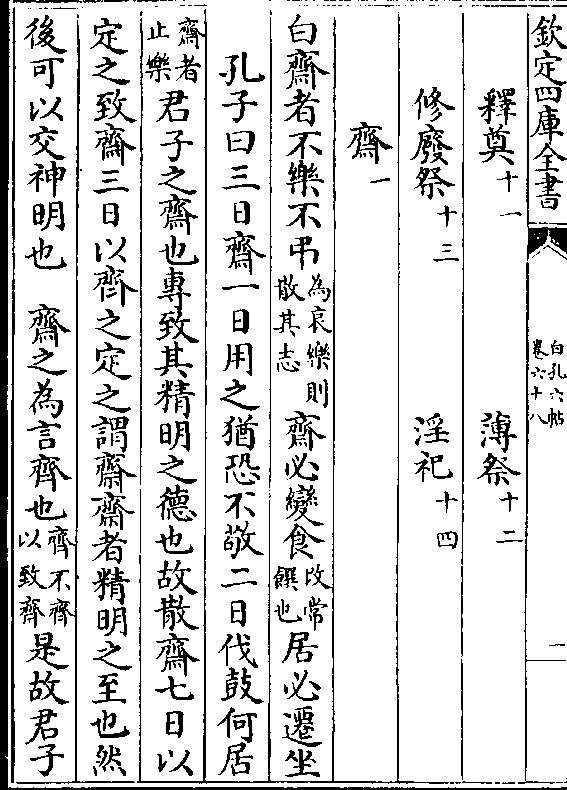 欽定四庫全書
白孔六帖
卷六十八
一
釋奠十一　薄祭十二
修廢祭十三　淫祀十四
齋一
白齋者不樂不弔為哀樂則散其志齋必變食改常饌也居必遷坐
孔子曰三日齋一日用之猶恐不敬二日伐鼓何居
齋者止樂君子之齋也專致其精明之德也故散齋七日以
定之致齋三日以齊之定之謂齋齋者精明之至也然
後可以交神明也　齋之為言齊也齊不齊以致齊是故君子